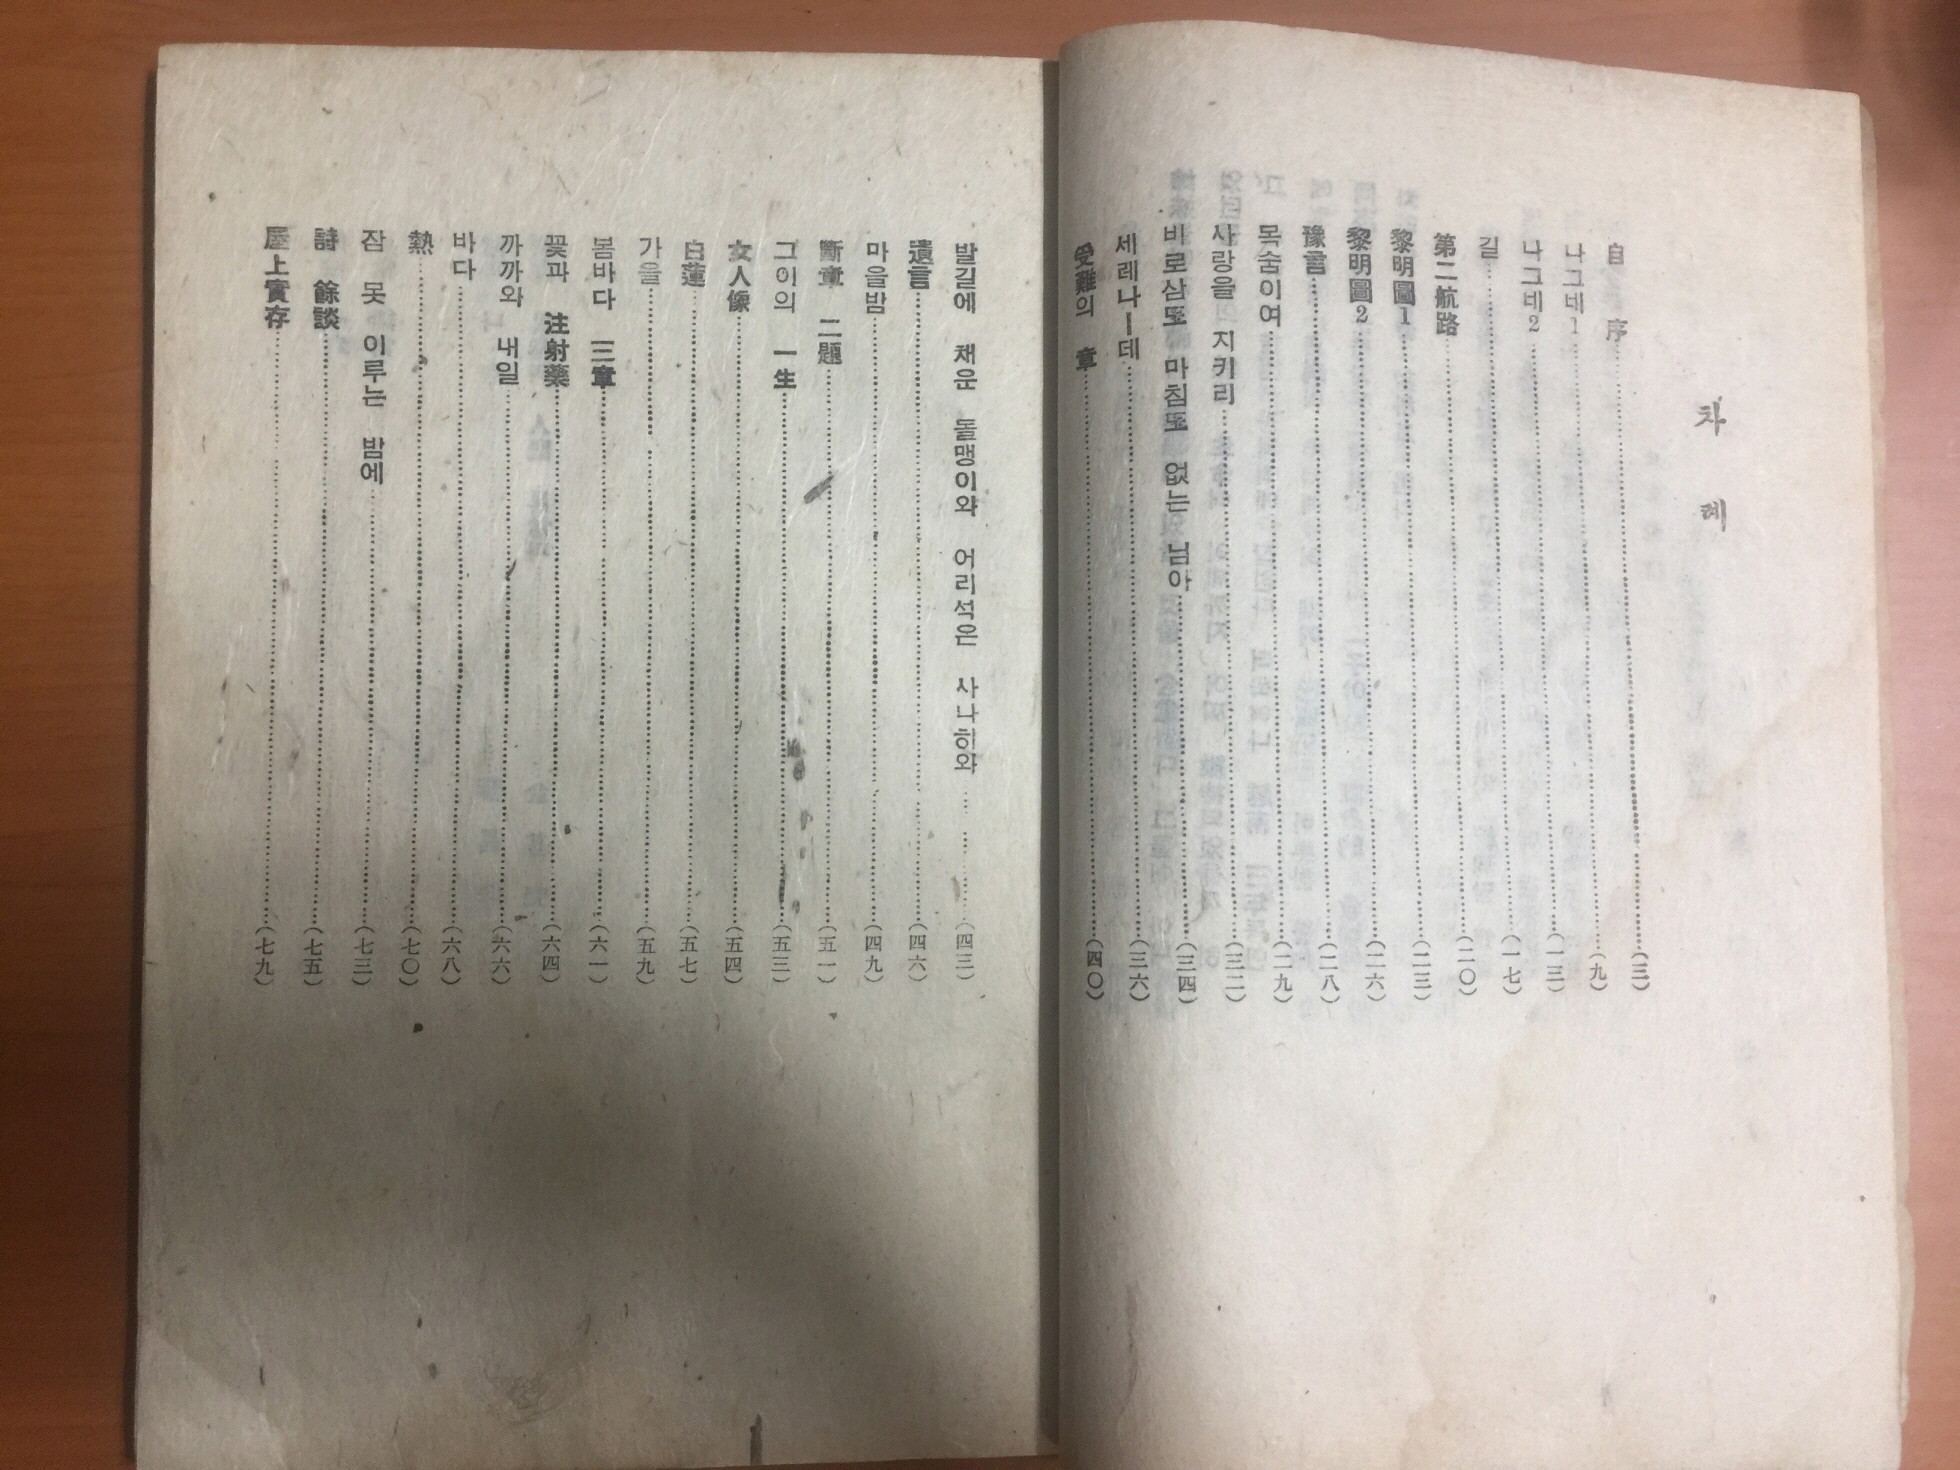 차 례
自 序……(三)
나그네 1……(九)
나그네 2……(一三)
길……(一七)
第二航路……(二〇)
黎明圖 1……(二三)
黎明圖 2……(二六)
豫言……(二八)
목숨이여……(二九)
사랑을 지키리……(三二)
비로삼도 마침도 없는 님아……(三四)
세레나ー데……(三六)
受難의 章……(四〇)
발길에 채운 돌맹이와 어리석은 사나히와……(四三)
遺言……(四六)
마을밤……(四九)
斷章 二題……(五一)
그이의 一生……(五三)
女人像……(五四)
白蓮……(五七)
가을……(五九)
봄바다 三章……(六一)
꽃과 注射藥……(六四)
까까와 내일……(六六)
바다……(六八)
熱……(七〇)
잠 못 이루는 밤에……(七三)
詩 餘談……(七五)
屋上實存……(七九)